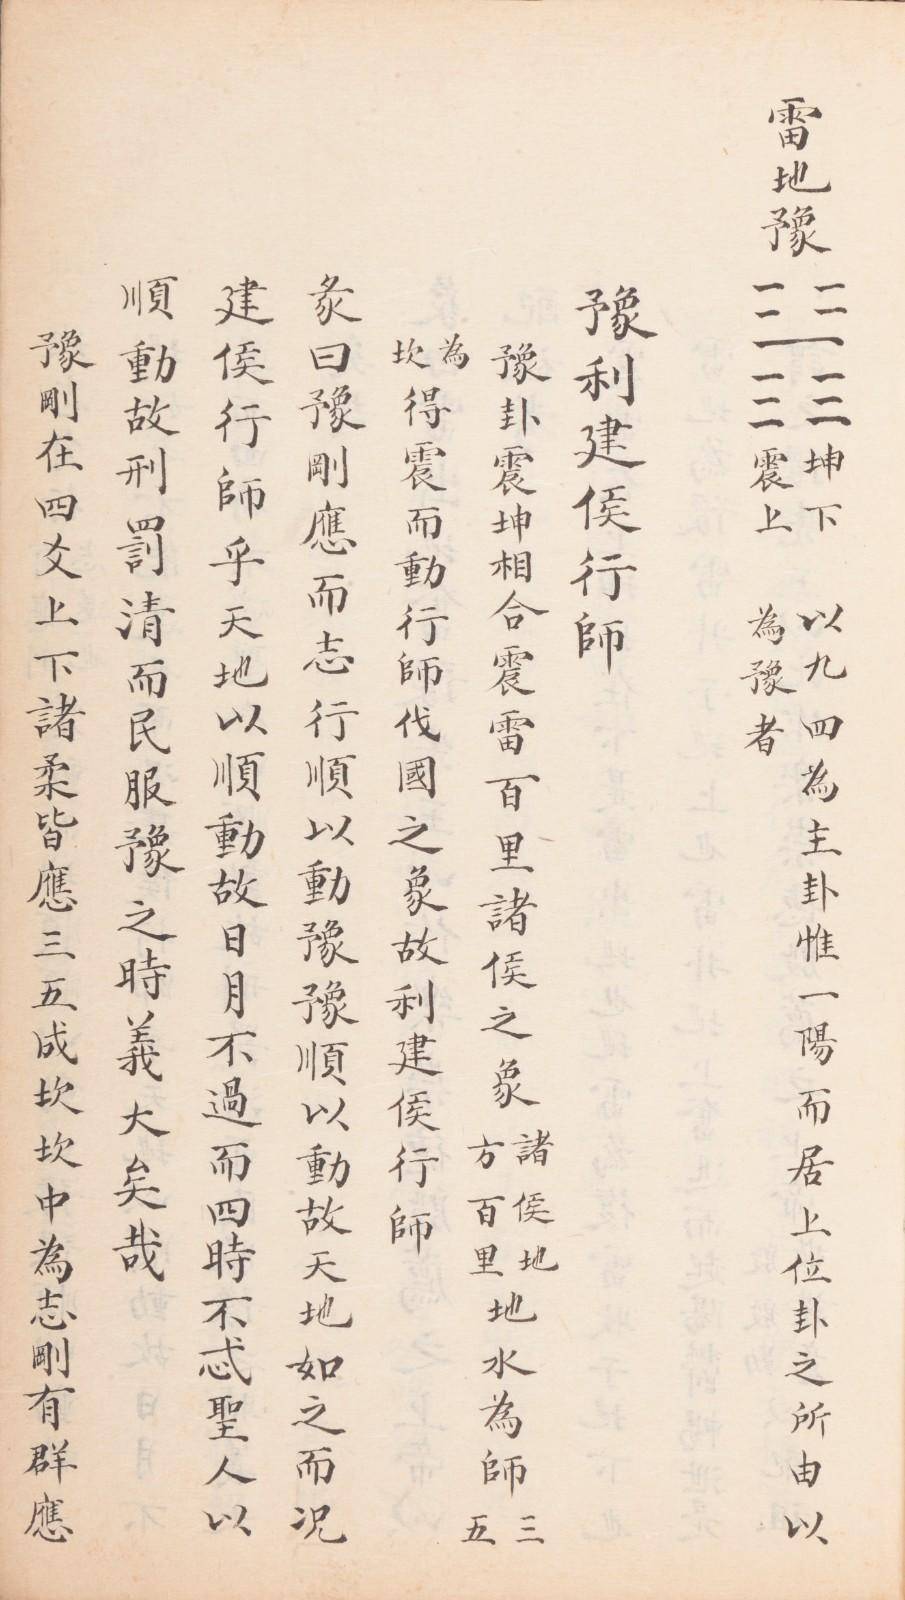 雷地豫
坤下 以九四為主卦惟一陽而居上位卦之所由以
震上 為豫者
豫利建侯行師
豫卦震坤相合震雷百里諸侯之象諸侯地方百里地水為師三五
為坎得震而動行師伐國之象故利建侯行師
彖曰豫剛應而志行順以動豫豫順以動故天地如之而况
建侯行師乎天地以順動故日月不過而四時不忒聖人以
順動故刑罰清而民服豫之時義大矣哉
豫剛在四爻上下諸柔皆應三五成坎坎中為志剛有群應